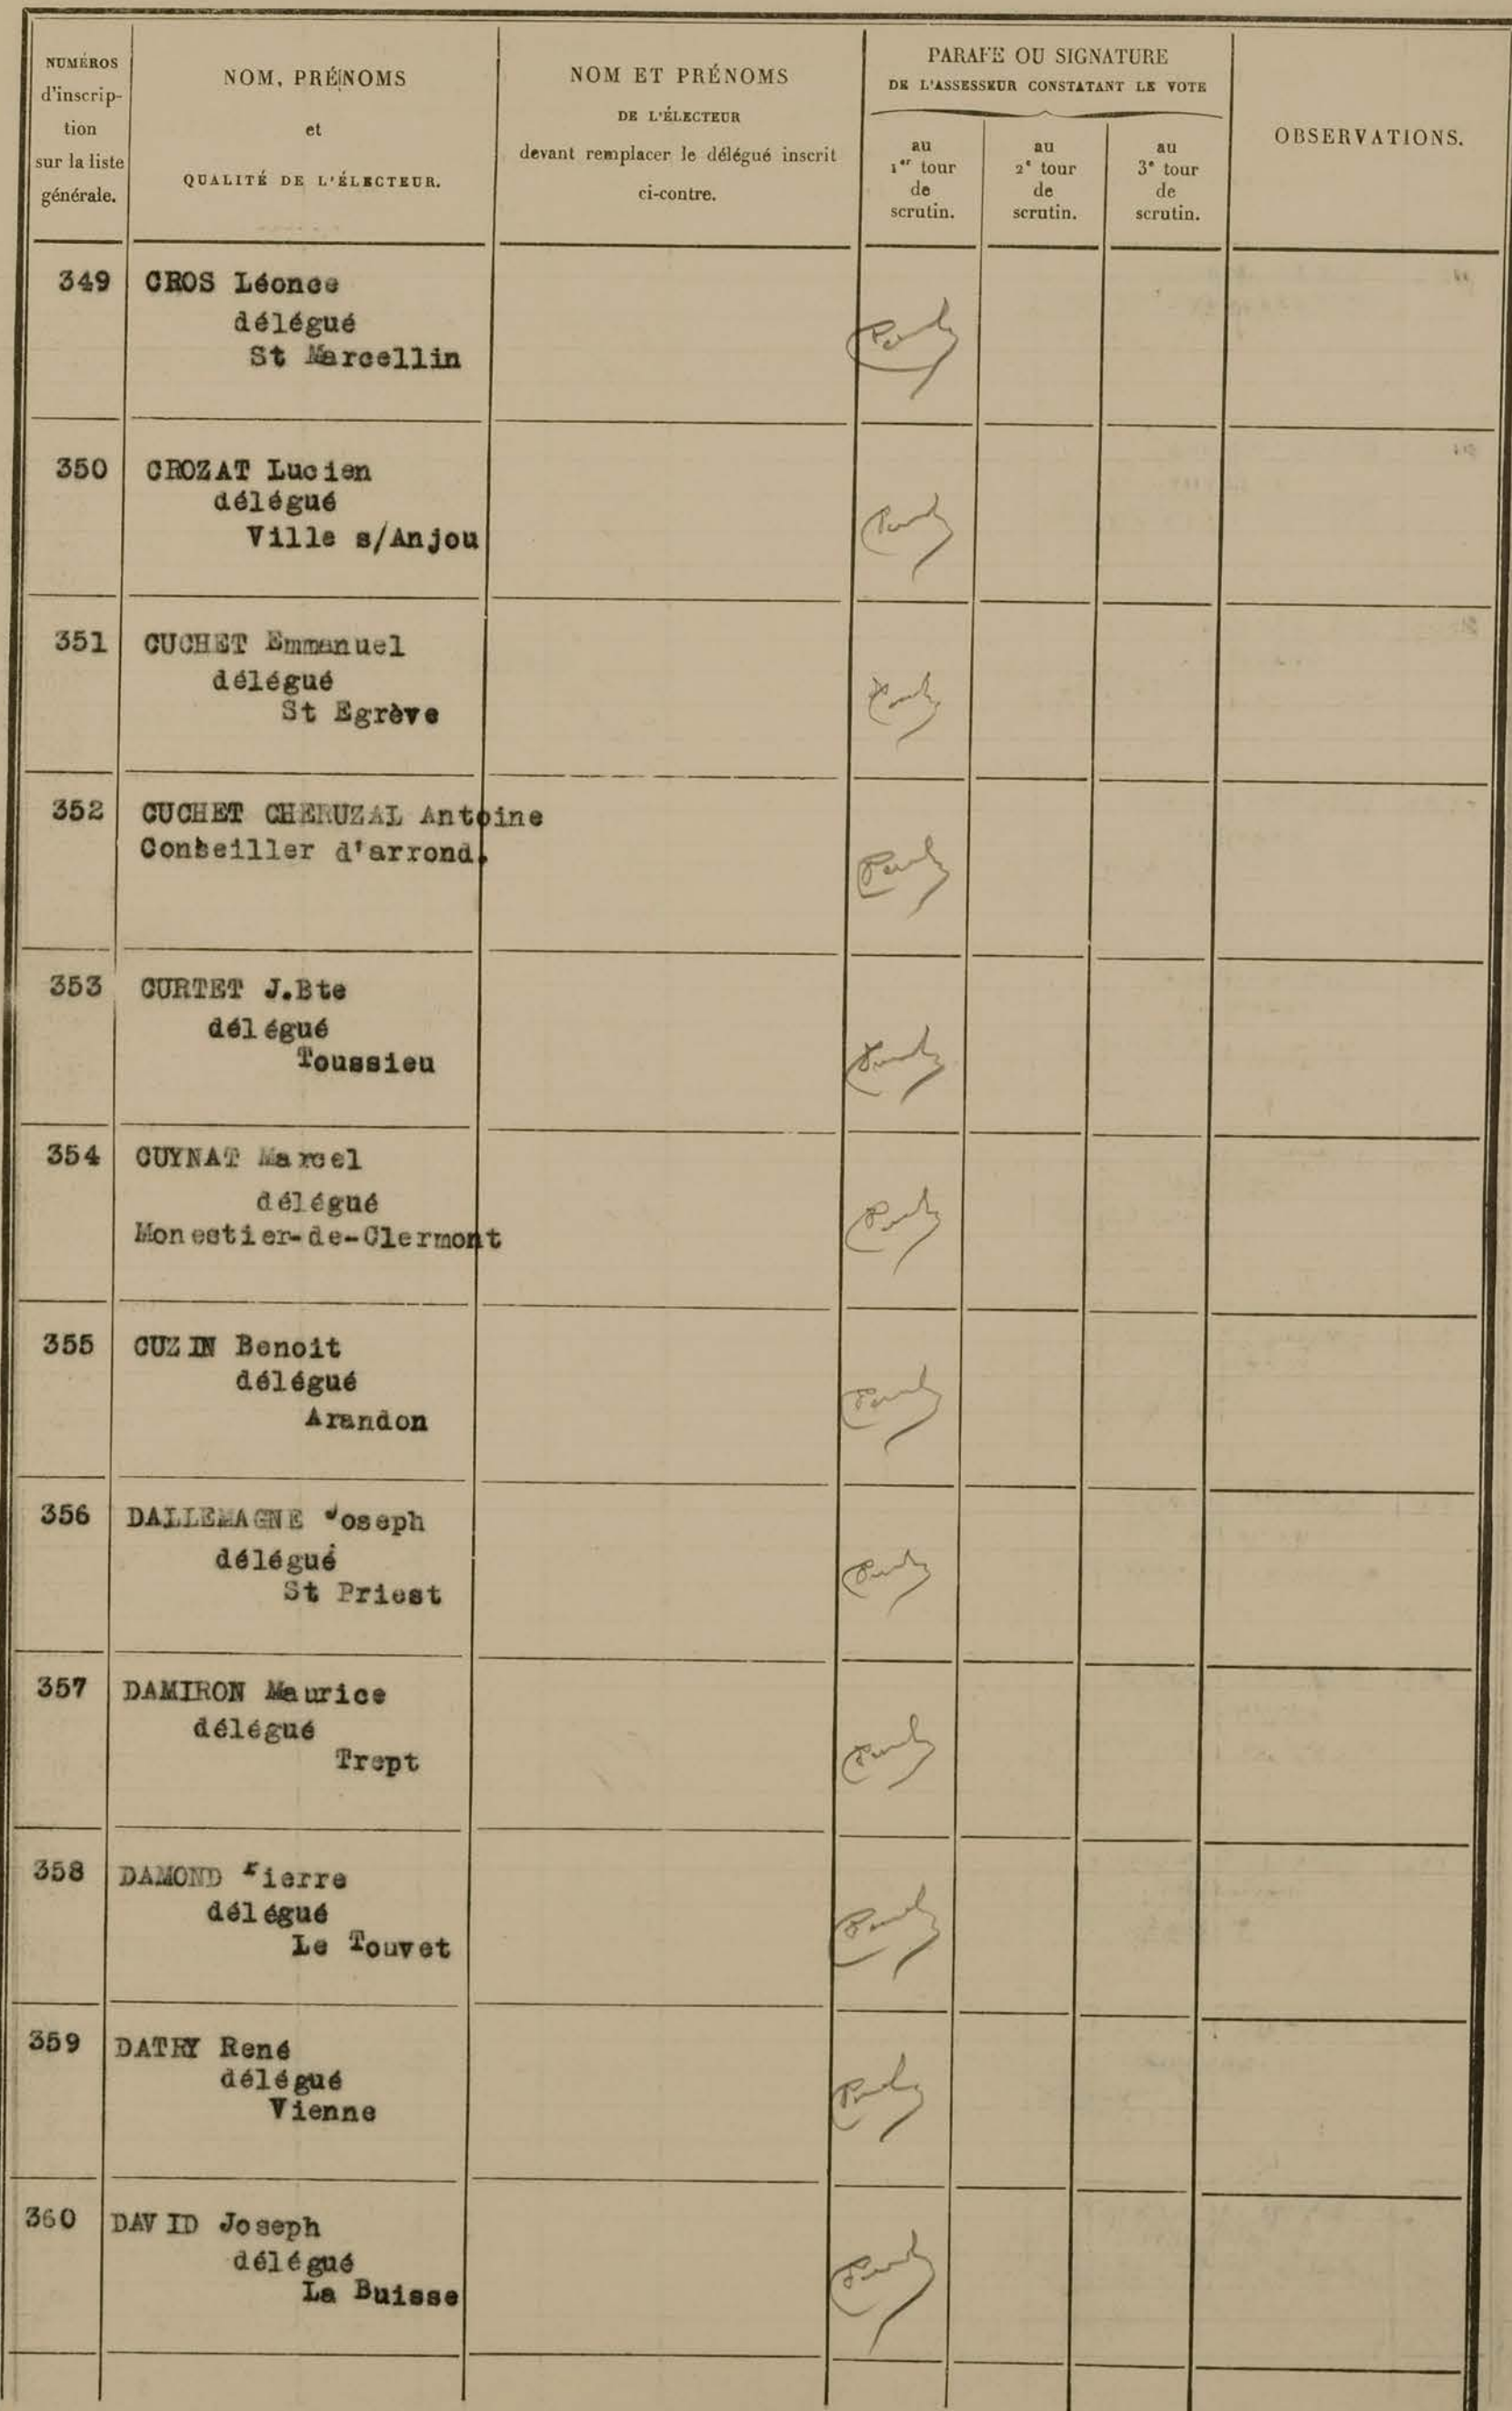 NUMÉROS
d'inscrip-
tion
sur la liste
générale.
NOM, PRÉNOMS
et
QUALITÉ DE L'ÉLECTEUR.
NOM ET PRÉNOMS
DE L'ÉLECTEUR
devant remplacer le délégué inscrit
ci-contre.
PARAFE OU SIGNATURE
DE L'ASSESSEUR CONSTATANT LE VOTE
au
1er tour
de
scrutin.
au
2e tour
de
scrutin.
au
3e tour
de
scrutin.
OBSERVATIONS.
349 CROS Léonce
délégué
St Marcellin
350 CROZAT Lucien
délégué
Ville s/Anjou
351 CUCHET Emmanuel
délégué
St Egrève
352 CUCHET CHERUZAL Antoine
Conseiller d'arrond.
353 CURTET J.Bte
délégué
Toussieu
354 CUYNAT Marcel
délégué
Monestier-de-Clermont
355 CUZIN Benoit
délégué
Arandon
356 DALLEMAGNE Joseph
délégué
St Priest
357 DAMIRON Maurice
délégué
Trept
358 DAMOND Pierre
délégué
Le Touvet
359 DATRY René
délégué
Vienne
360 DAVID Joseph
délégué
La Buisse